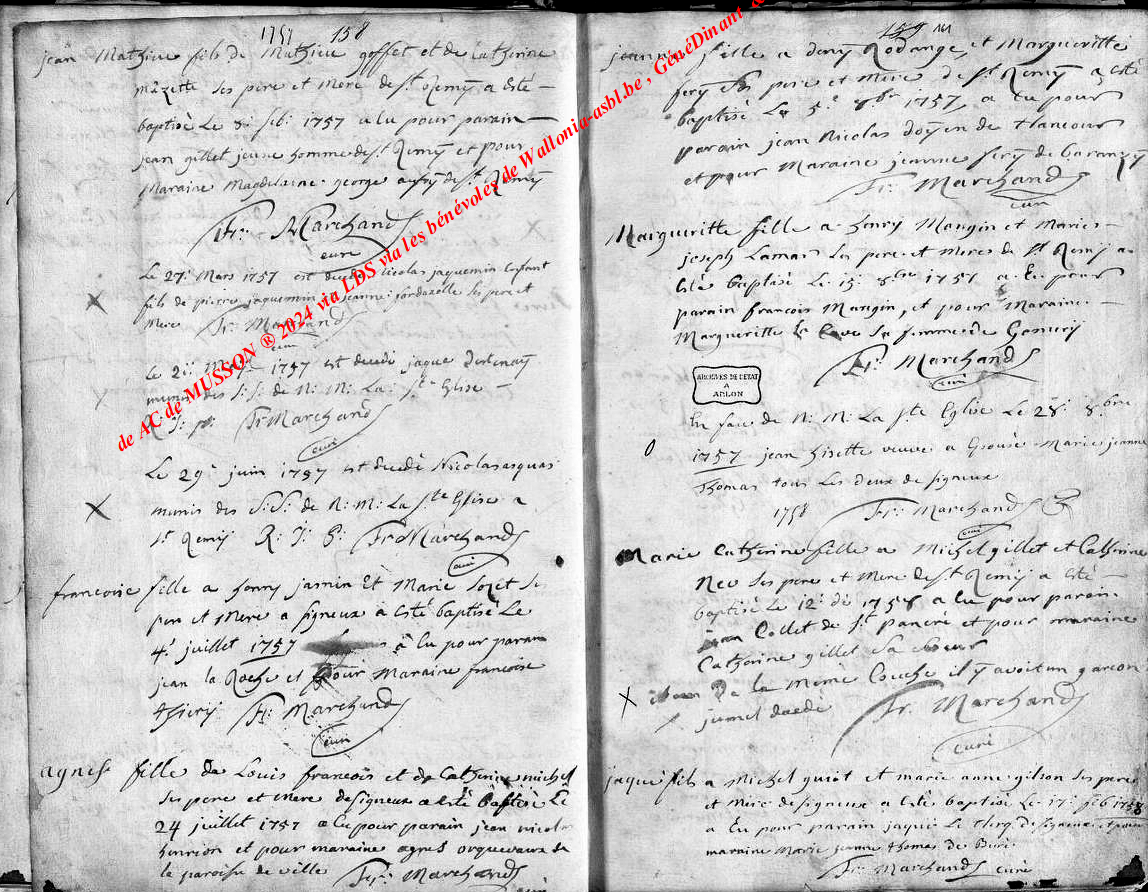 1757 158
jean Mathieu fils de Mathieu goffet et de Catherine
mazette ses pere et Mere de st Remy a esté
baptisé Le 8: feb: 1757 a lu pour parain
jean gillet jeune homme de st Remy et pour
Maraine Magdelaine george aussy de st Remy
Fr: Marchand
curé
Le 27: Mars 1757 est decedé nicolas jaquemin Enfant
fils de pierre jaquemin jeanne ses pere et
Mere Fr: Marchand
curé
Le 21: 1757 est decedé jaque
munis des S: S: de N: M: La: Ste Eglise
R: J: p: Fr Marchand
curé
Le 29: juin 1757 est decedé Nicolas
munis des S: S: de N: M: La Ste Eglise a
st Remy R: J: P: Fr Marchand
curé
francoise fille a henry jasmin Et Marie ses
pere et Mere a signeux a Esté baptisé Le
4: juillet 1757 a lu pour parain
jean la Roche et pour Maraine francoise
thiery Fr: Marchand
curé
agnes fille de Louis francois et de Catherine michel
ses pere et Mere de signeux a Esté baptisé Le
24 juillet 1757 a lu pour parain jean nicolas
henrion et pour maraine agnes de
le paroise de ville Fr: Marchand
curé
159
jeanne fille a deny Rodange et Margueritte
fery ses pere et Mere de st Remy a Esté
baptisé Le 5: 8br 1757 a lu pour
parain jean Nicolas doyen de
et pour Maraine jeanne fery de baranzy
Fr: Marchand
curé
Margueritte fille a henry Mangin et Marie
joseph Lamar ses pere et Meres de st Remy a
Esté baptisé Le 15: 8bre 1757 a Eu pour
parain francois Mangin, et pour Maraine
Margueritte La sa femme de Gomery
Fr: Marchand
curé
ARCHIVES DE L'ETAT
A
ARLON
En face de N: M: La ste Eglise Le 28: 8bre
1757 jean hisette veuve a Epousé Marie jeanne
Thomas tous Les deux de signeux
1758 Fr: Marchand
curé
Marie Catherine fille a Michel gillet et Catherine
Neo ses pere et Mere de st Remy a Esté
baptisé Le 12: 1758 a lu pour parain
jean Collet de st pancré et pour maraine
Catherine gillet sa soeur
de la Meme Couche il y avoit un garcon
jumel decedé Fr: Marchand
curé
jaque fils a Michel guiot et marie anne gilson ses pere
et Mere de signeux a Esté baptisé Le 17: feb 1758
a Eu pour parain jaque Le Clerq de signeux et pour
maraine Marie jeanne thomas de Buré
Fr: Marchand curé
de AC de MUSSON ® 2024 via LDS via les bénévoles de Wallonia-asbl.be , GénéDinant &